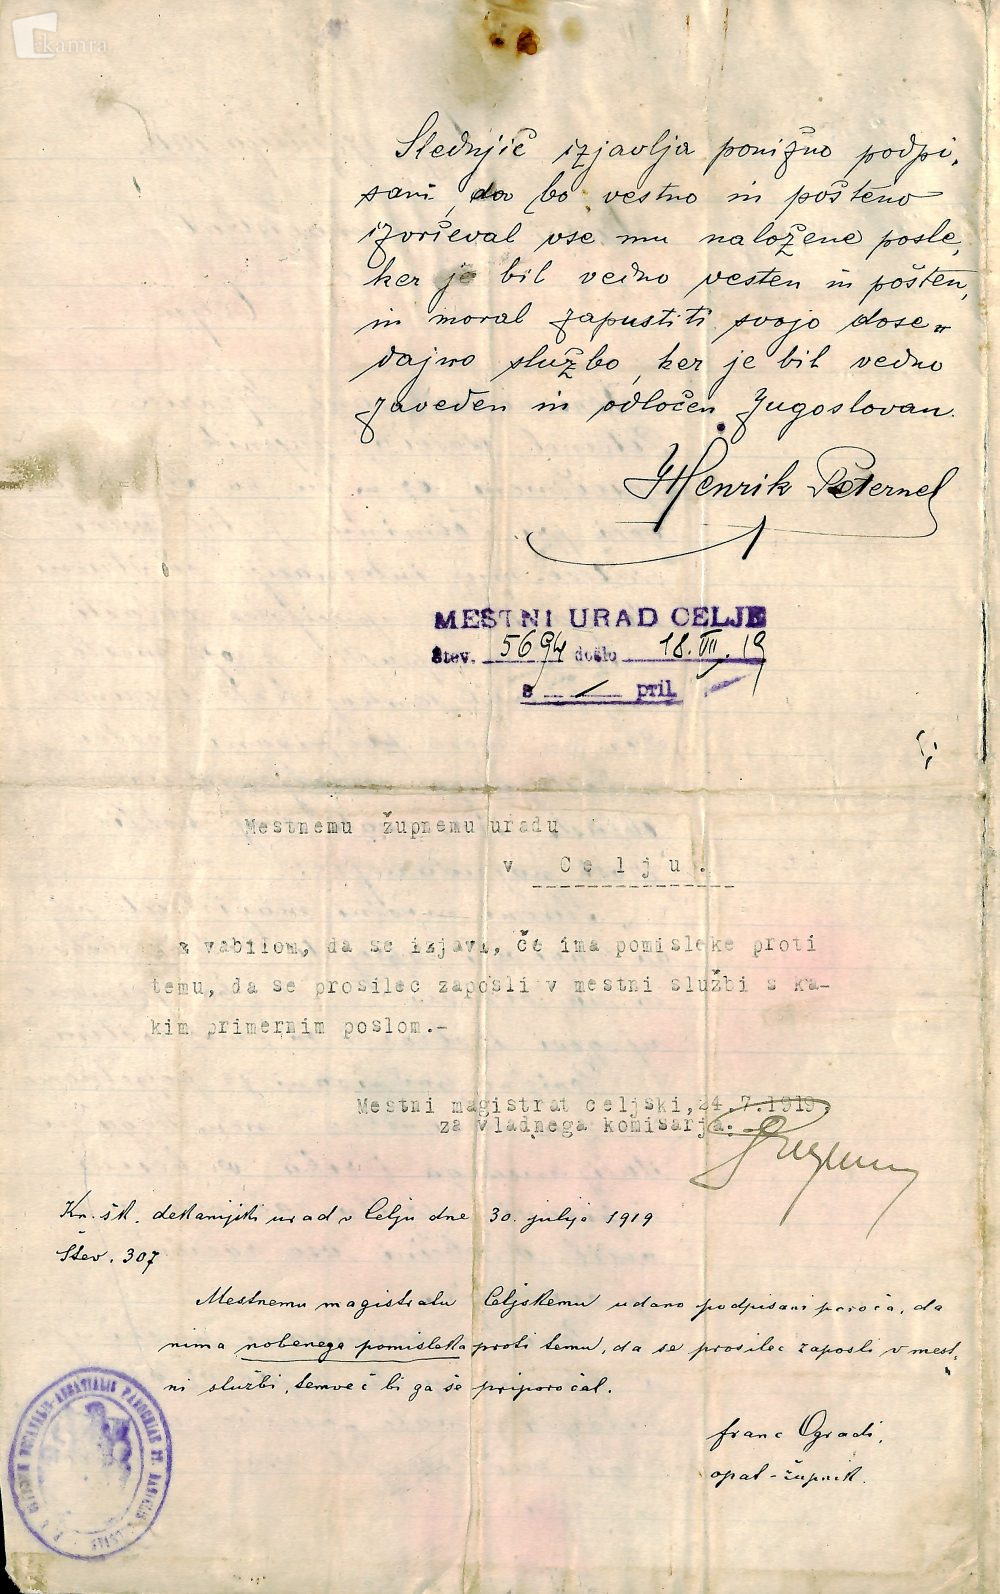 kamra
Slednjič izjavlja ponižno podpi„
sani, da bo vestno in pošteno
izvrševal vse mu naložene posle,
ker je bil vedno vesten in pošten,
in moral zapustiti svojo dose„
dajno službo, ker je bil vedno
zaveden in odločen Jugoslovan.
Henrik Peternel
MESTNI URAD CELJE
Štev. 5694 došlo 18. VII. 19
s / pril.
Mestnemu župnemu uradu
v Celju.
z vabilom, da se izjavi, če ima pomisleke proti
temu, da se prosilec zaposli v mestni službi s ka-
kim primernim poslom.-
Mestni magistrat celjski, 24.7.1919.
za vladnega komisarja:
Kn. šk. dekanijski urad v Celju dne 30. julija 1919
Štev. 307
Mestnemu magistratu Celjskemu udano podpisani poroča, da
nima nobenega pomisleka proti temu, da se prosilec zaposli v mest-
ni službi, temveč bi ga še priporočal.
Franc Ogradi,
opat-župnik.